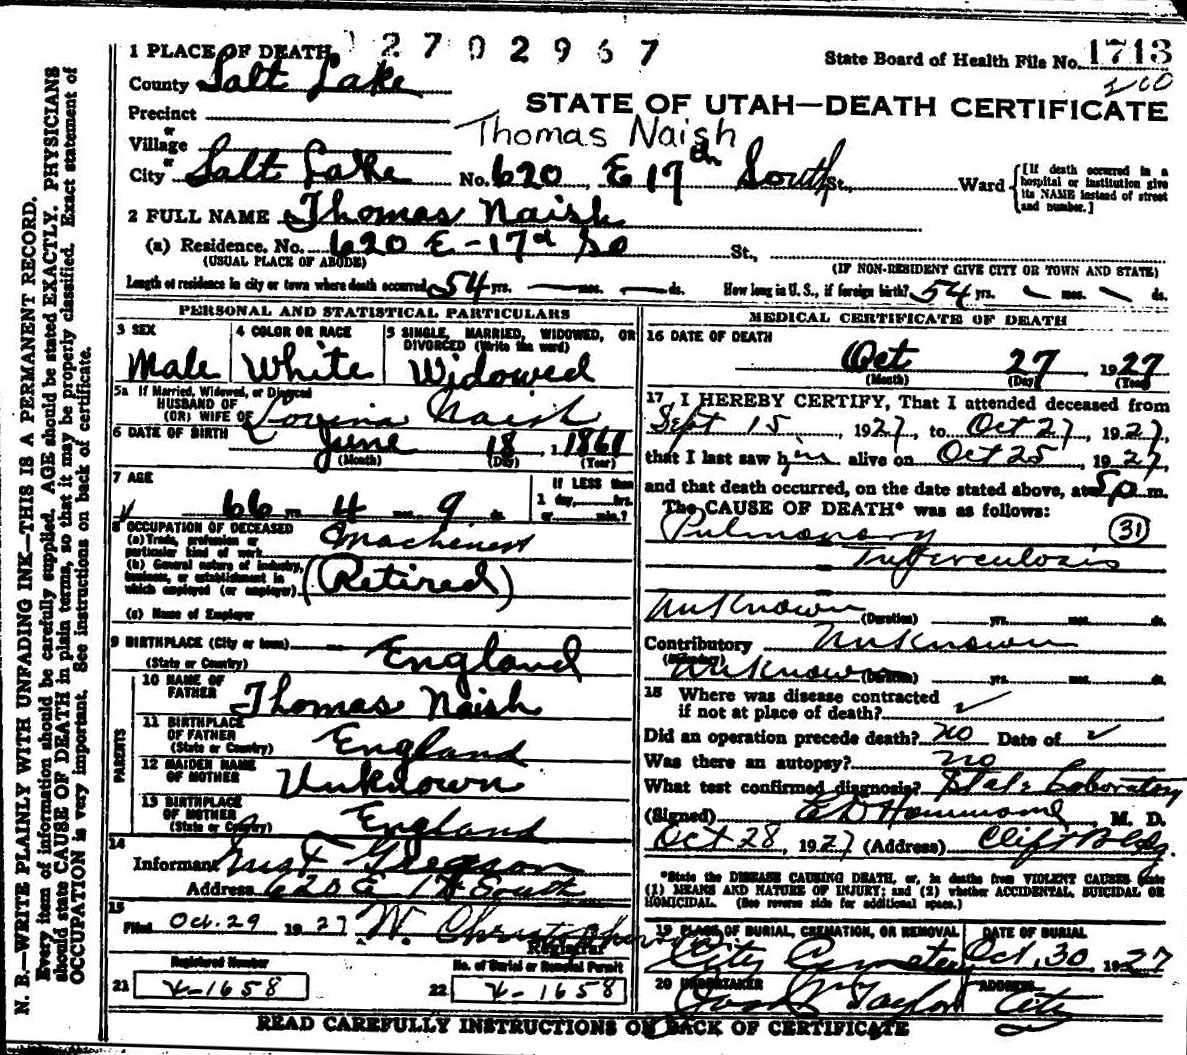 2702967
State Board of Health File No. 1713
260
STATE OF UTAH—DEATH CERTIFICATE
Thomas Naish
1 PLACE OF DEATH
County Salt Lake
Precinct
or
Village
or
City Salt Lake No. 620 E 17th South St., Ward [If death occurred in a hospital or institution give its NAME instead of street and number.]
2 FULL NAME Thomas Naish
(a) Residence. No. 620 E-17th So St.,
(USUAL PLACE OF ABODE) (IF NON-RESIDENT GIVE CITY OR TOWN AND STATE)
Length of residence in city or town where death occurred 54 yrs. — mos. — ds. How long in U. S., if foreign birth? 54 yrs. mos. ds.
PERSONAL AND STATISTICAL PARTICULARS
3 SEX
Male
4 COLOR OR RACE
White
5 SINGLE, MARRIED, WIDOWED, OR DIVORCED (Write the word)
Widowed
5a If Married, Widowed, or Divorced
HUSBAND OF
(OR) WIFE OF Lovina Naish
6 DATE OF BIRTH June 18 1861
(Month) (Day) (Year)
7 AGE
66 yrs. 4 mos. 9 ds.
IF LESS than
1 day, hrs.
or min.?
8 OCCUPATION OF DECEASED
(a) Trade, profession or
particular kind of work Machenist
(b) General nature of industry,
business, or establishment in
which employed (or employer) (Retired)
(c) Name of Employer
9 BIRTHPLACE (City or town)
(State or Country) England
PARENTS
10 NAME OF
FATHER Thomas Naish
11 BIRTHPLACE
OF FATHER
(State or Country) England
12 MAIDEN NAME
OF MOTHER Unknown
13 BIRTHPLACE
OF MOTHER
(State or Country) England
14
Informant
Address 620 E 17 South
15
Filed Oct. 29 1927 W.
Registrar
Registered Number
21 X-1658
No. of Burial or Removal Permit
22 X-1658
MEDICAL CERTIFICATE OF DEATH
16 DATE OF DEATH
Oct 27 1927
(Month) (Day) (Year)
17 I HEREBY CERTIFY, That I attended deceased from
Sept 15, 1927, to Oct 27, 1927,
that I last saw him alive on Oct 25, 1927,
and that death occurred, on the date stated above, at 5 p. m.
The CAUSE OF DEATH* was as follows:
Pulmonary (31)
Tuberculosis
Unknown (Duration) yrs. mos. ds.
Contributory Unknown
Unknown (Duration) yrs. mos. ds.
18 Where was disease contracted
if not at place of death? ✓
Did an operation precede death? no Date of ✓
Was there an autopsy? no
What test confirmed diagnosis? State Laboratory
(Signed) E D Hammond, M. D.
Oct 28, 1927 (Address) Clift Bldg.
*State the DISEASE CAUSING DEATH, or, in deaths from VIOLENT CAUSES state
(1) MEANS AND NATURE OF INJURY; and (2) whether ACCIDENTAL, SUICIDAL OR
HOMICIDAL. (See reverse side for additional space.)
19 PLACE OF BURIAL, CREMATION, OR REMOVAL
City Cemetery
DATE OF BURIAL
Oct. 30 1927
20 UNDERTAKER
Taylor
ADDRESS
City
READ CAREFULLY INSTRUCTIONS ON BACK OF CERTIFICATE
N. B.—WRITE PLAINLY WITH UNFADING INK—THIS IS A PERMANENT RECORD.
Every item of information should be carefully supplied. AGE should be stated EXACTLY. PHYSICIANS
should state CAUSE OF DEATH in plain terms, so that it may be properly classified. Exact statement of
OCCUPATION is very important. See instructions on back of certificate.